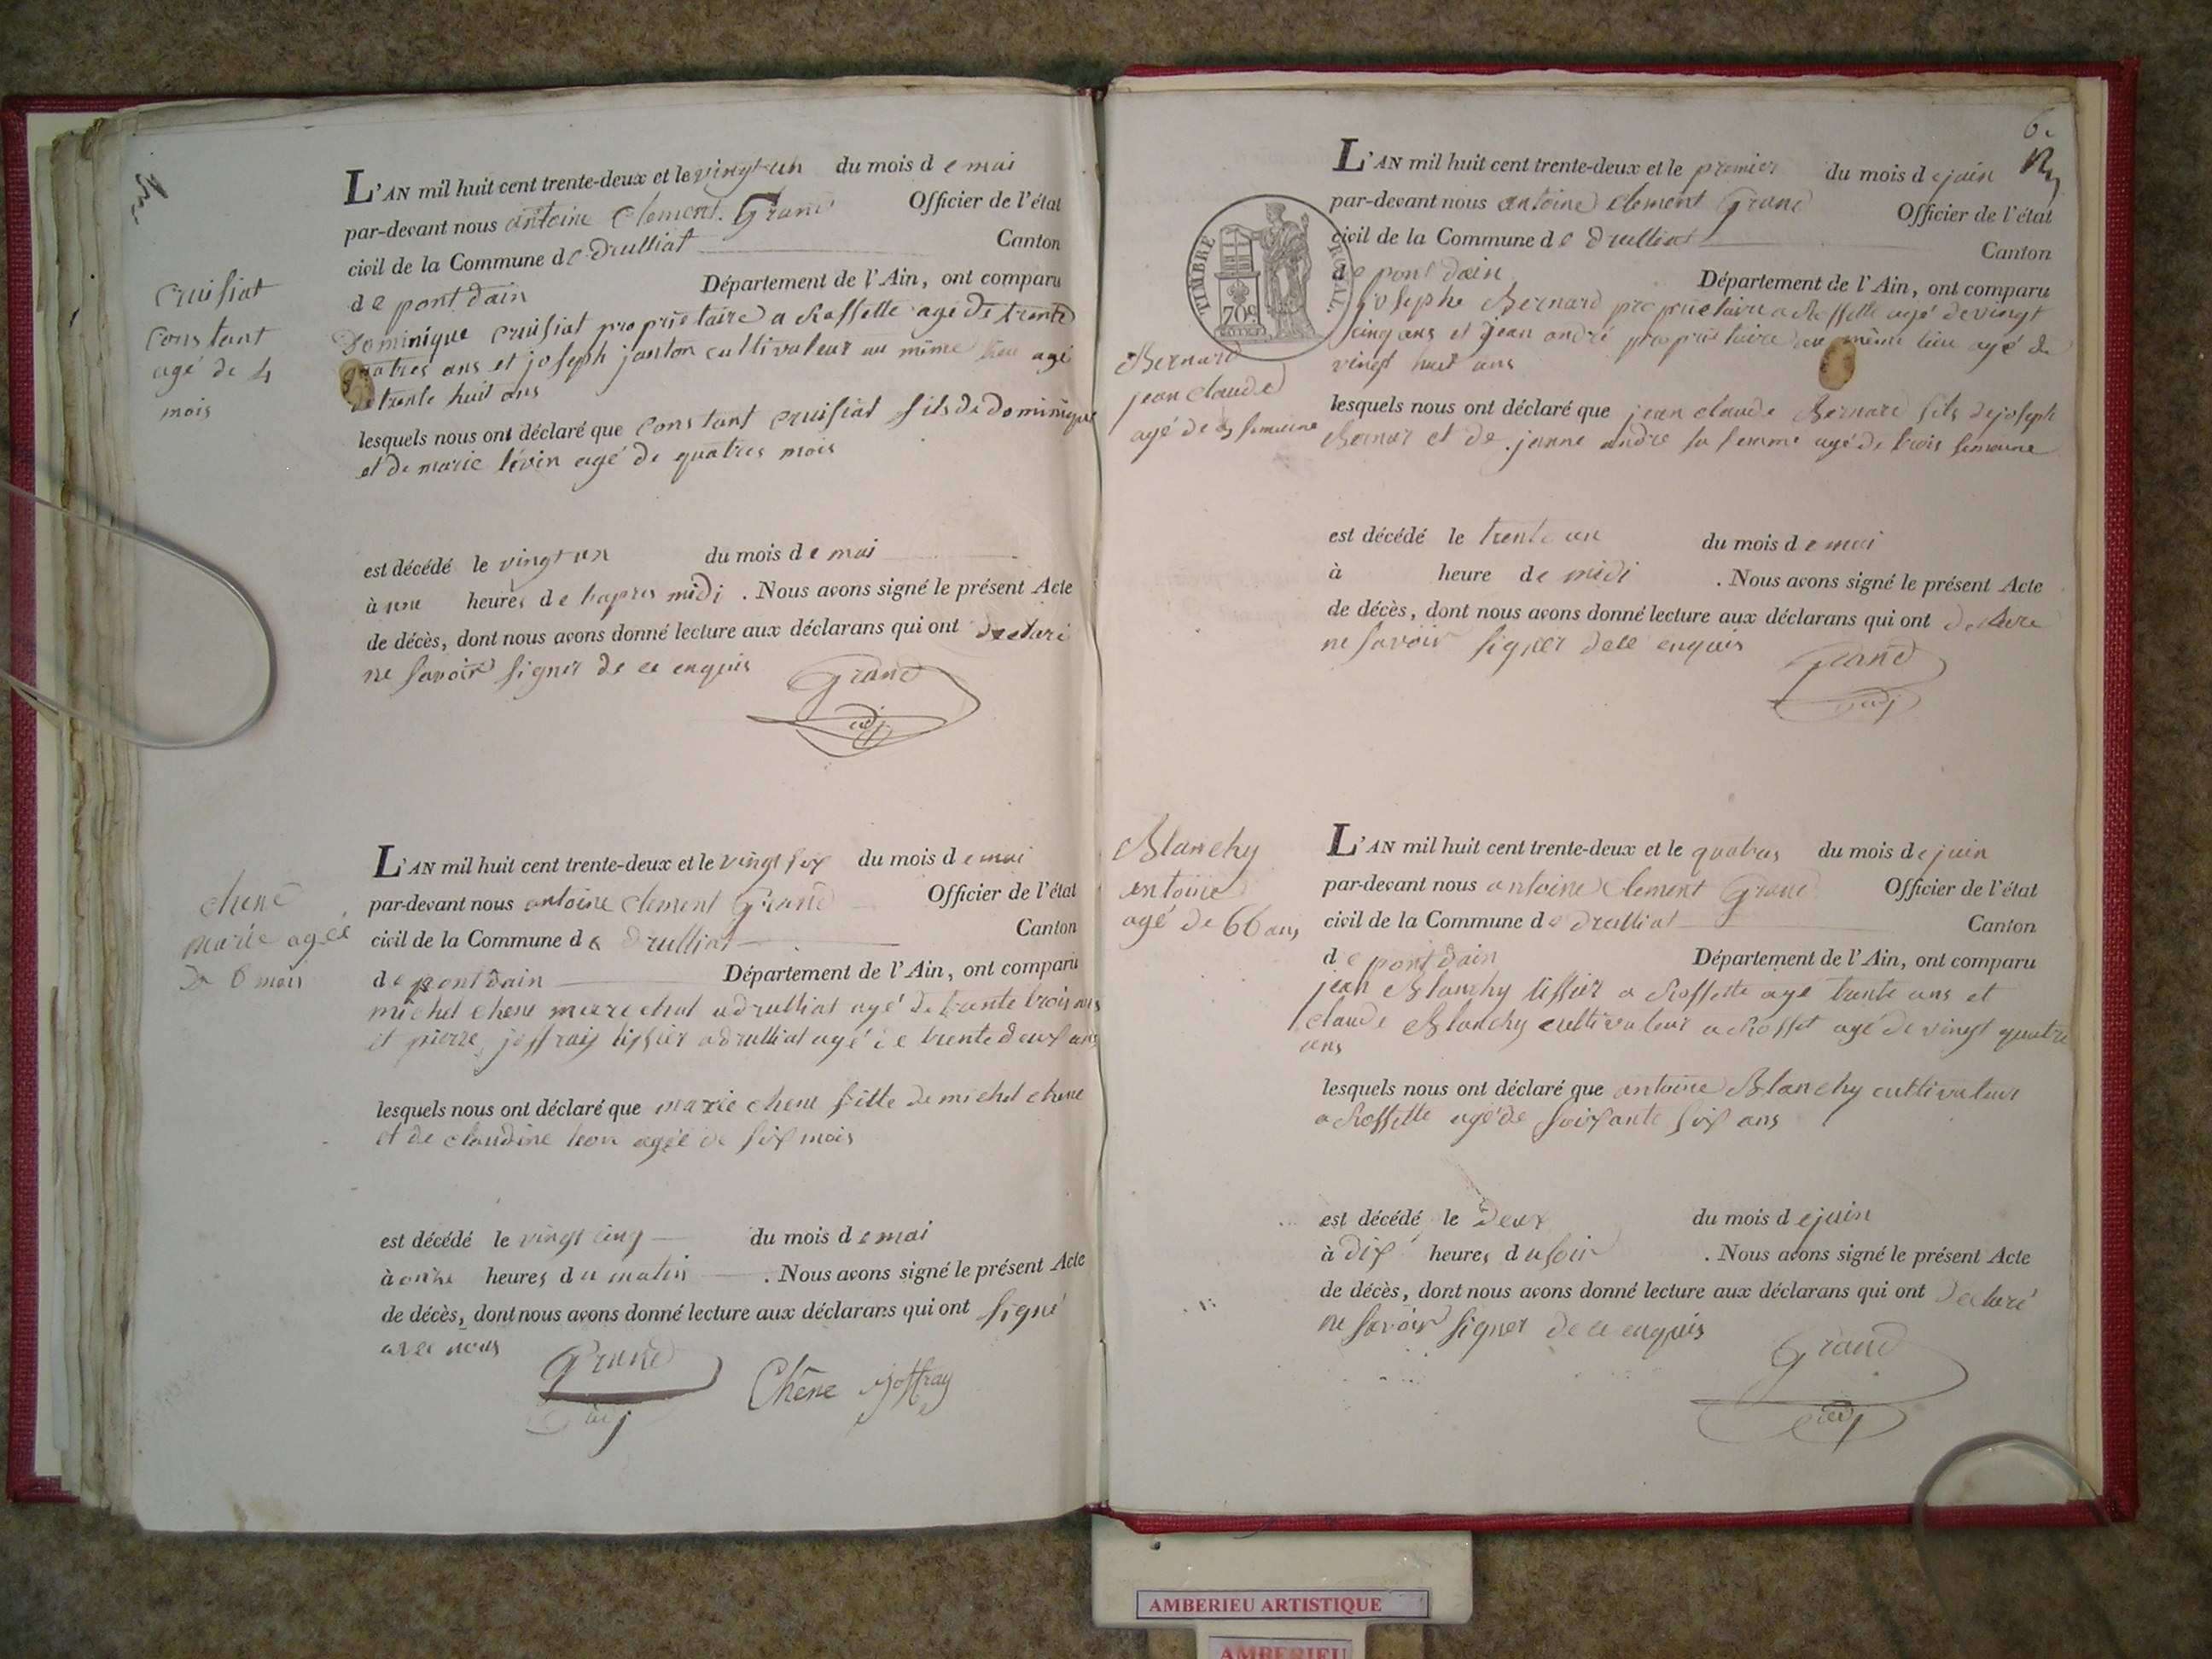 cruisiat
constant
agé de 4
mois
L'AN mil huit cent trente-deux et le vingt un du mois d e mai
par-devant nous antoine Clement Grand Officier de l'état
civil de la Commune de Drulliat Canton
de pont dain Département de l'Ain, ont comparu
Dominique cruisiat propriétaire a Rossette agé de trente
quatres ans et joseph janton cultivateur au même lieu agé
de trente huit ans
lesquels nous ont déclaré que constant cruisiat fils de dominique
et de marie agé de quatres mois
est décédé le vingt un du mois d e mai
à une heures de hapres midi . Nous avons signé le présent Acte
de décès, dont nous avons donné lecture aux déclarans qui ont declaré
ne savoir signer de ce enquis
Grand
adj
chene
marie agée
De 6 mois
L'AN mil huit cent trente-deux et le vingt six du mois d e mai
par-devant nous antoine Clement Grand Officier de l'état
civil de la Commune de Drulliat Canton
de pont dain Département de l'Ain, ont comparu
michel chene marechal a drulliat agé de trente trois ans
et pierre joffray tissier a drulliat agé de trente deux ans
lesquels nous ont déclaré que marie chene fille de michel chene
et de claudine agée de six mois
est décédé le vingt cinq du mois d e mai
à onze heures du matin . Nous avons signé le présent Acte
de décès, dont nous avons donné lecture aux déclarans qui ont signé
avec nous
Grand Chêne joffray
adj
6.
TIMBRE ROYAL
70c
Bernard
jean claude
agé de 3 semaine
L'AN mil huit cent trente-deux et le premier du mois de juin
par-devant nous antoine Clement Grand Officier de l'état
civil de la Commune de Drulliat Canton
de pont dain Département de l'Ain, ont comparu
josephe Bernard propriétaire a Rossette agé de vingt
cinq ans et jean andré propriétaire au même lieu agé de
vingt huit ans
lesquels nous ont déclaré que jean claude Bernard fils de joseph
Bernar et de janne andre sa femme agé de trois semaine
est décédé le trente un du mois d e mai
à heure de midi . Nous avons signé le présent Acte
de décès, dont nous avons donné lecture aux déclarans qui ont declare
ne savoir signer de ce enquis
Grand
adj
Blanchy
antoine
agé de 66 ans
L'AN mil huit cent trente-deux et le quatres du mois de juin
par-devant nous antoine Clement Grand Officier de l'état
civil de la Commune de drulliat Canton
de pont dain Département de l'Ain, ont comparu
jean Blanchy tissier a Rossette agé trente ans et
claude Blanchy cultivateur a Rosset agé de vingt quatre
ans
lesquels nous ont déclaré que antoine Blanchy cultivateur
a Rossette agé de soixante six ans
est décédé le Deux du mois de juin
à dix heures du soir . Nous avons signé le présent Acte
de décès, dont nous avons donné lecture aux déclarans qui ont declaré
ne savoir signer de ce enquis
Grand
adj
AMBERIEU ARTISTIQUE
AMBERIEU